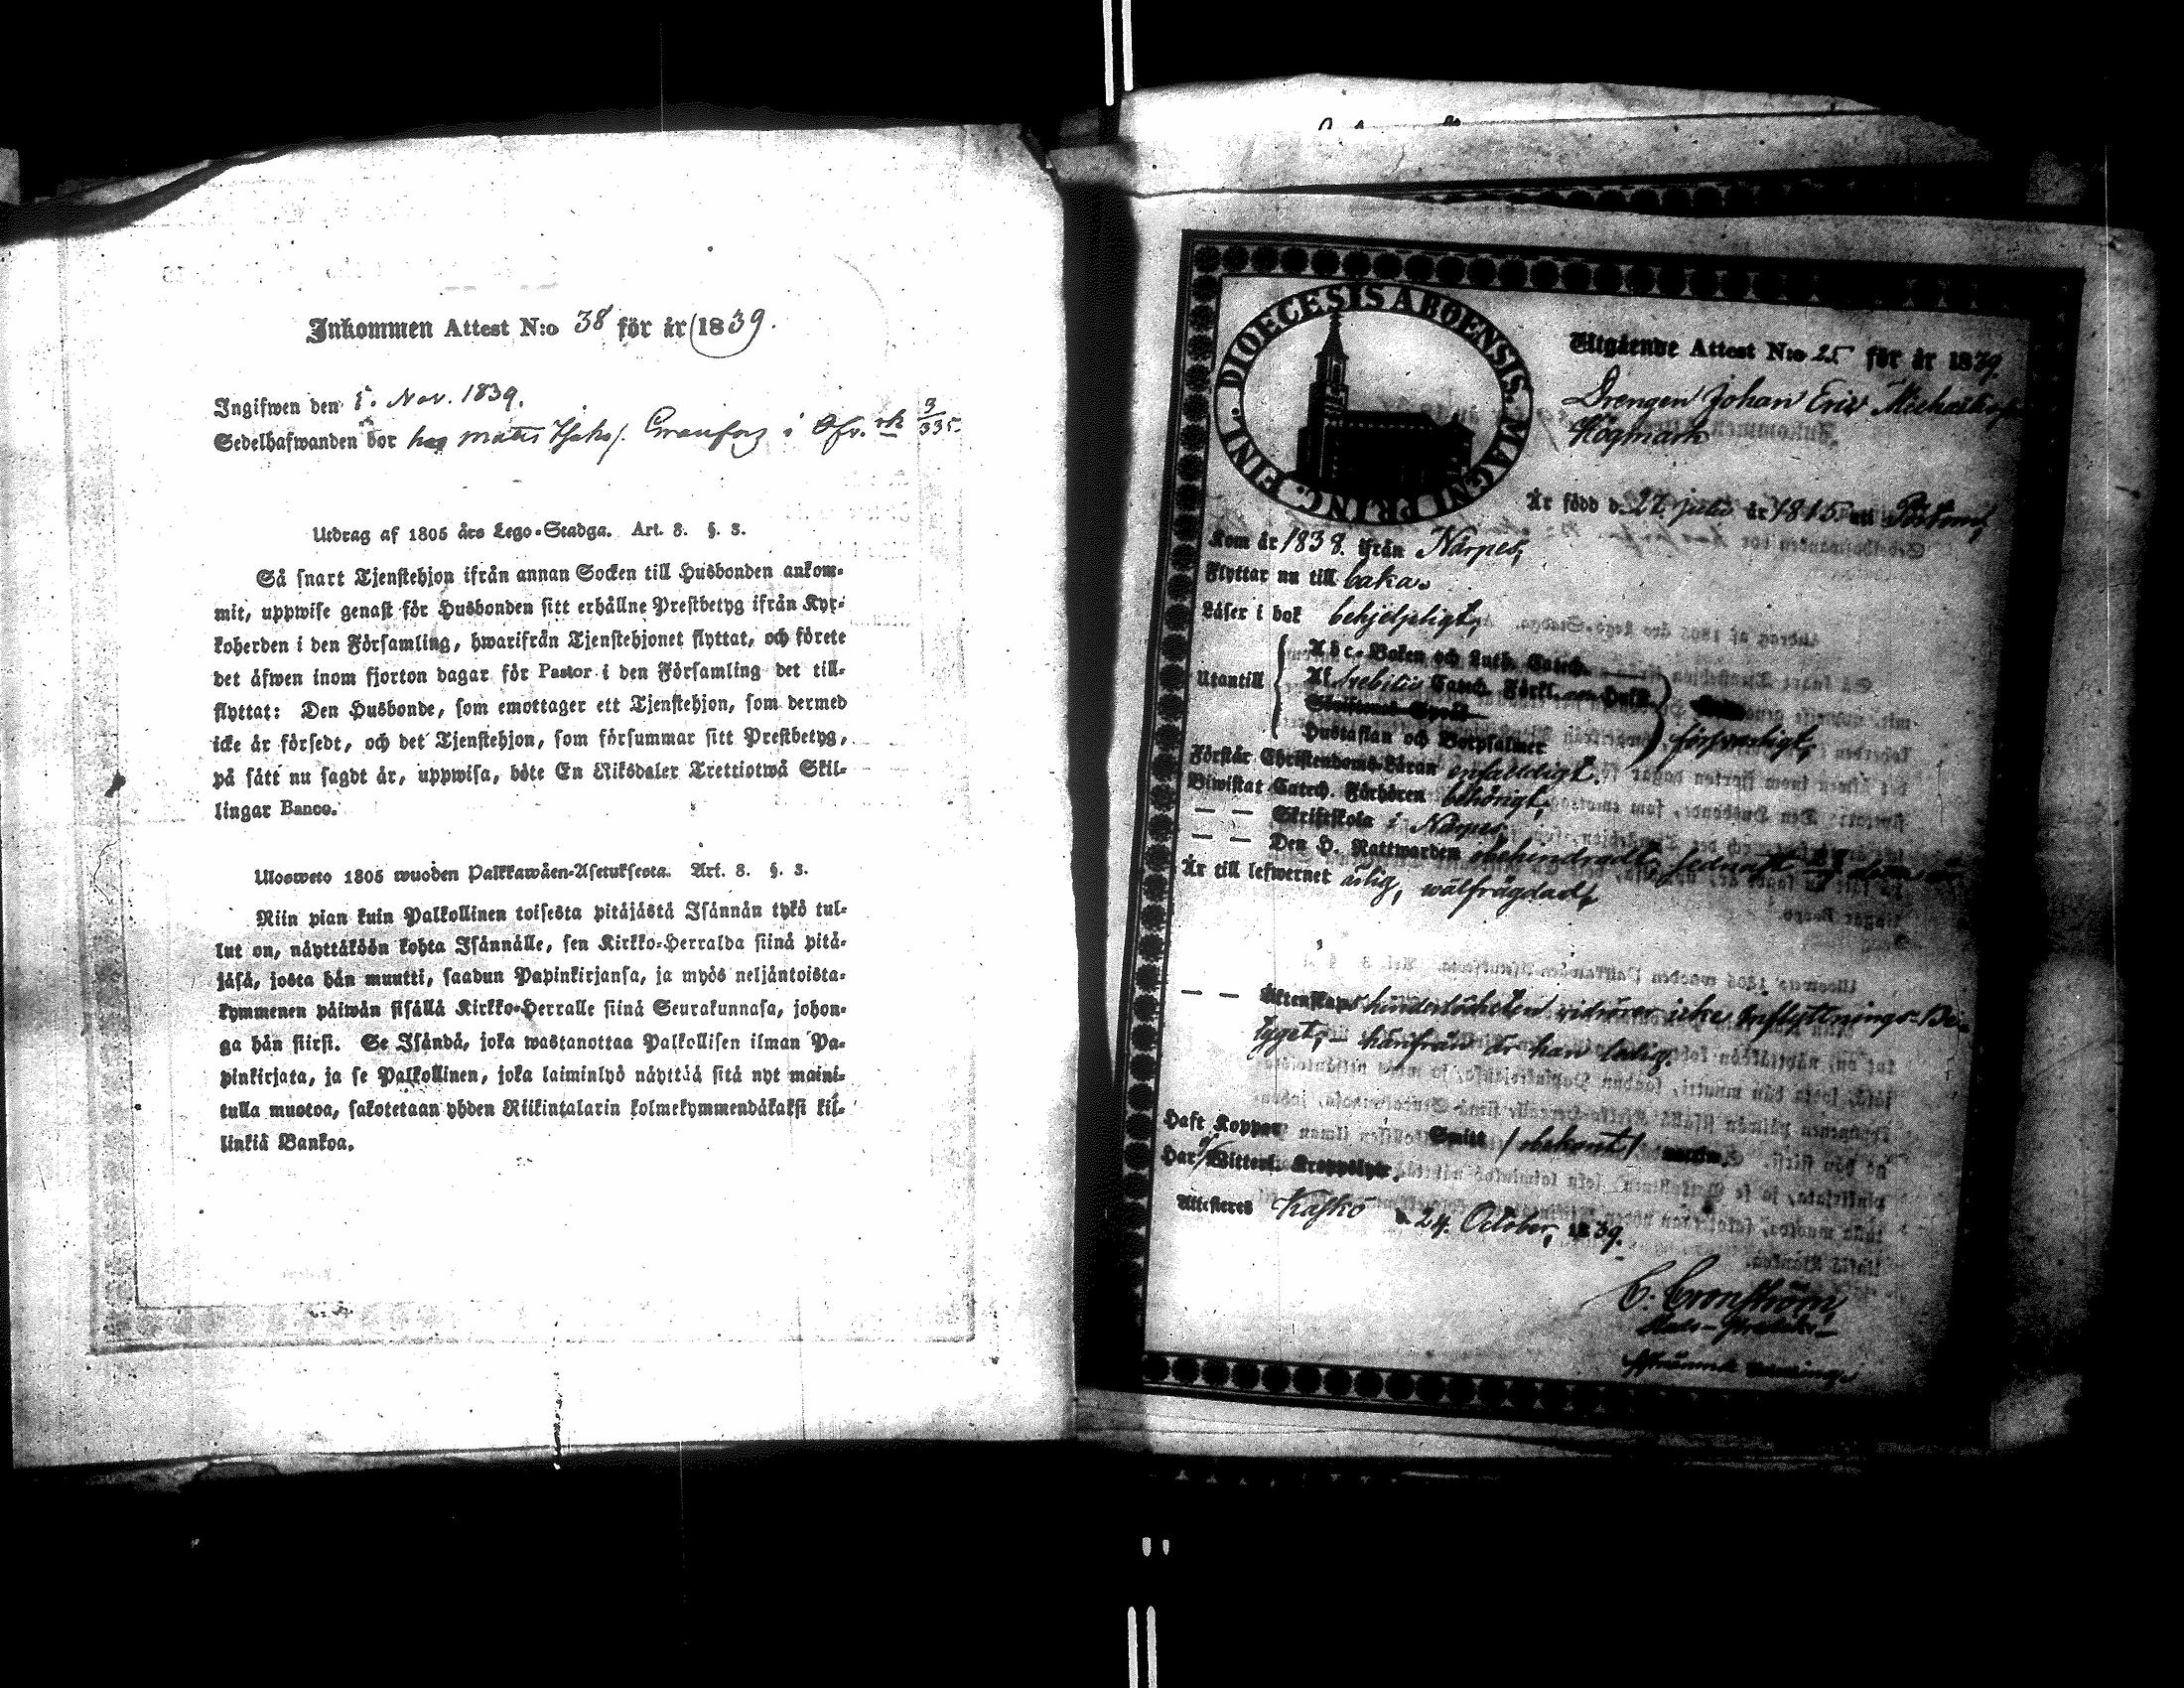 Inkommen Attest N:o 38 för år 1839.
Ingifwen den 1. Nov. 1839.
Sedelhafwanden bor hos Matts i Öfv. 3/335.
Utdrag af 1805 års Lego-Stadga. Art. 8. §. 3.
Så snart Tjenstehjon ifrån annan Socken till Husbonden ankom-
mit, uppwise genast för Husbonden sitt erhållne Prestbetyg ifrån Kyr-
koherden i den Församling, hwarifrån Tjenstehjonet flyttat, och förete
det äfwen inom fjorton dagar för Pastor i den Församling det till-
flyttat: Den Husbonde, som emottager ett Tjenstehjon, som dermed
icke är försedt, och det Tjenstehjon, som försummar sitt Prestbetyg,
på sätt nu sagdt är, uppwisa, böte En Riksdaler Trettiotwå Skil-
lingar Banco.
Ulosweto 1805 wuoden Palkkawäen-Asetuksesta. Art. 8. §. 3.
Niin pian kuin Palkollinen toisesta pitäjästä Isännän tykö tul-
lut on, näyttäköön kohta Isännälle, sen Kirkko-Herralda siinä pitä-
jäsä, josta hän muutti, saadun Papinkirjansa, ja myös neljäntoista-
kymmenen päiwän sisällä Kirkko-Herralle siinä Seurakunnasa, johon-
ga hän siirsi. Se Isändä, joka wastanottaa Palkollisen ilman Pa-
pinkirjata, ja se Palkollinen, joka laiminlyö näyttää sitä nyt maini-
tulla muotoa, sakotetaan yhden Riikintalarin kolmekymmendäkaksi kil-
linkiä Bankoa.
DIOECESIS ABOENSIS. MAGNI PRINC. FINL.
Utgående Attest N:o 25 för år 1839.
Drengen Johan Eric Michaelsson
Högmark
Är född d. 27 julii år 1815 uti Pörtom,
Kom år 1838. ifrån Närpes,
Flyttar nu till baka.
Läser i bok behjelpligt,
Utantill
Abc-Boken och Luth. Catech.
Af Svebilii Catech. Förkl.
Skriftenes Språk
Hustaflan och Botpsalmer
försvarligt,
Förstår Christendoms-Läran enfaldigt.
Biwistat Catech. Förhören behörigt,
— — Skriftskola i Närpes,
— — Den H. Nattwarden obehindradt, sednast
Är till lefwernet ärlig, wälfrägdad,
— — Äktenskaps hindersbetyget; härifrån är han ledig.
Haft Koppor Smitt /obekant/
Har ej Witterl. Kroppslyte.
Attesteres Kaskö d. 24. October, 1839.
C. Cronström